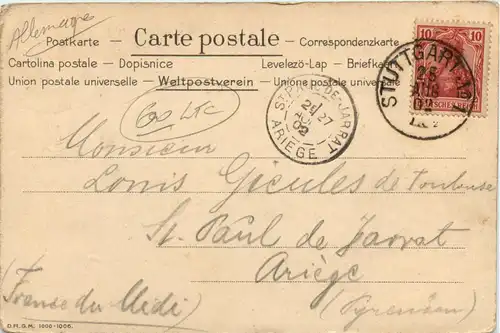 Allemagne
Postkarte — Carte postale — Correspondenzkarte
Cartolina postale — Dopisnice Levelezö-Lap — Briefkaart
Union postale universelle — Weltpostverein — Unione postale universale
10 10
DEUTSCHES REICH
STUTTGART
25
AUG
02
ST PAUL-DE-JARRAT
21 27
02
ARIEGE
Monsieur
Louis de Toulouse
St. Paul de Jarrat
Ariège
(France du Midi) (Pyrenäen)
D.R.G.M. 1000-1006.